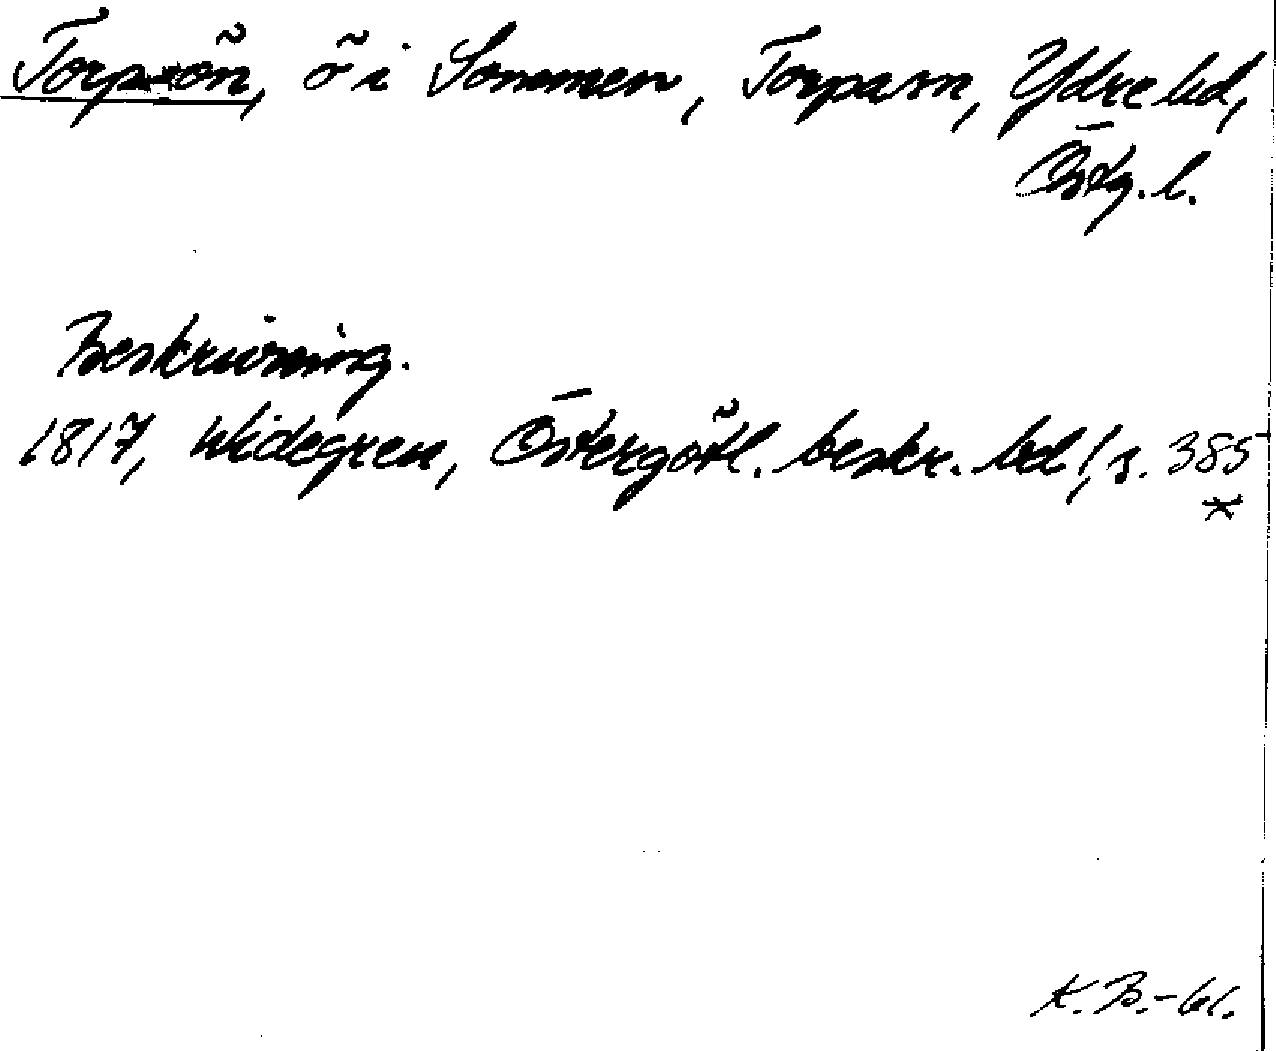 Torpöön, ö i Sommen, Torpasn, Ydre hd,
Östg. l.
Beskrivning.
1817, Widegren, Östergötl. beskr. bd 1, s. 385
*
K. B. - 61.